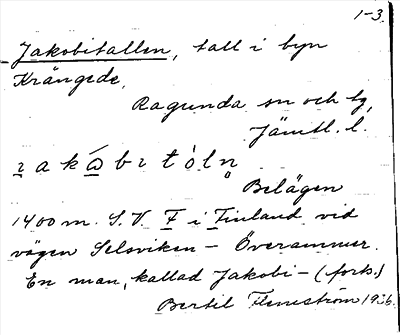 1-3.
Jakobitallen, tall i byn
Krångede,
Ragunda sn och tg,
Jämtl. l.
Belägen
1400 m. S.V. F i Finland vid
vägen Selsviken - Överammer.
En man, kallad Jakobi - (forts.)
Bertil Flemström 1936.